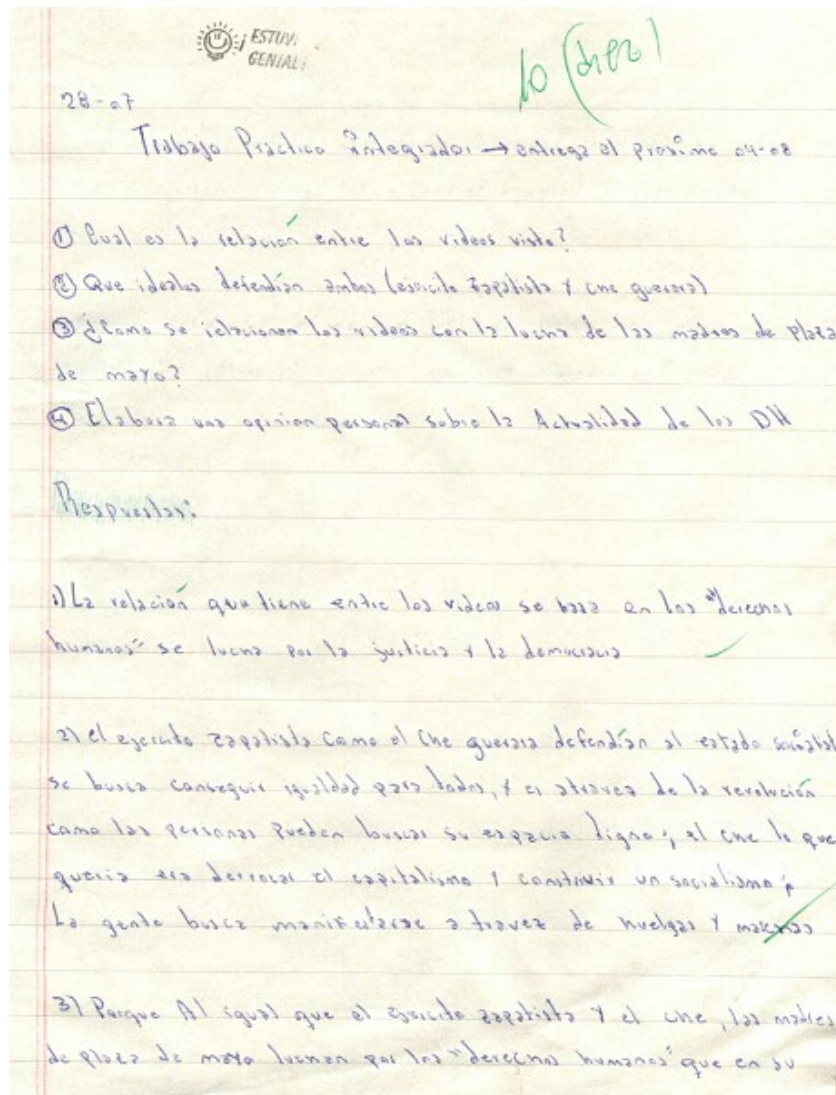 ¡ ESTUV
GENIAL!
10 (diez)
28-07
Trabajo Practico integrador → entrega el proximo 04-08
① Cual es la relación entre los videos visto?
② Que ideales defendían ambos (ejercito zapatista y che guevara)
③ ¿Como se relacionan los videos con la lucha de las madres de plaza
de mayo?
④ Elabora una opinion personal sobre la Actualidad de los DH
Respuestas:
1) La relación que tiene entre los videos se basa en los "derechos
humanos" se lucha por la justicia y la democracia
2) el ejercito zapatista como el che guevara defendían al estado
se busca conseguir igualdad para todos, y es atravez de la revolución
como las personas pueden buscar su espacio digno; el che lo que
queria era derrocar el capitalismo y construir un socialismo;
La gente busca manifestarse a travez de huelgas y marchas
3) Porque Al igual que el ejercito zapatista y el che, las madres
de plaza de mayo luchan por los "derechos humanos" que en su